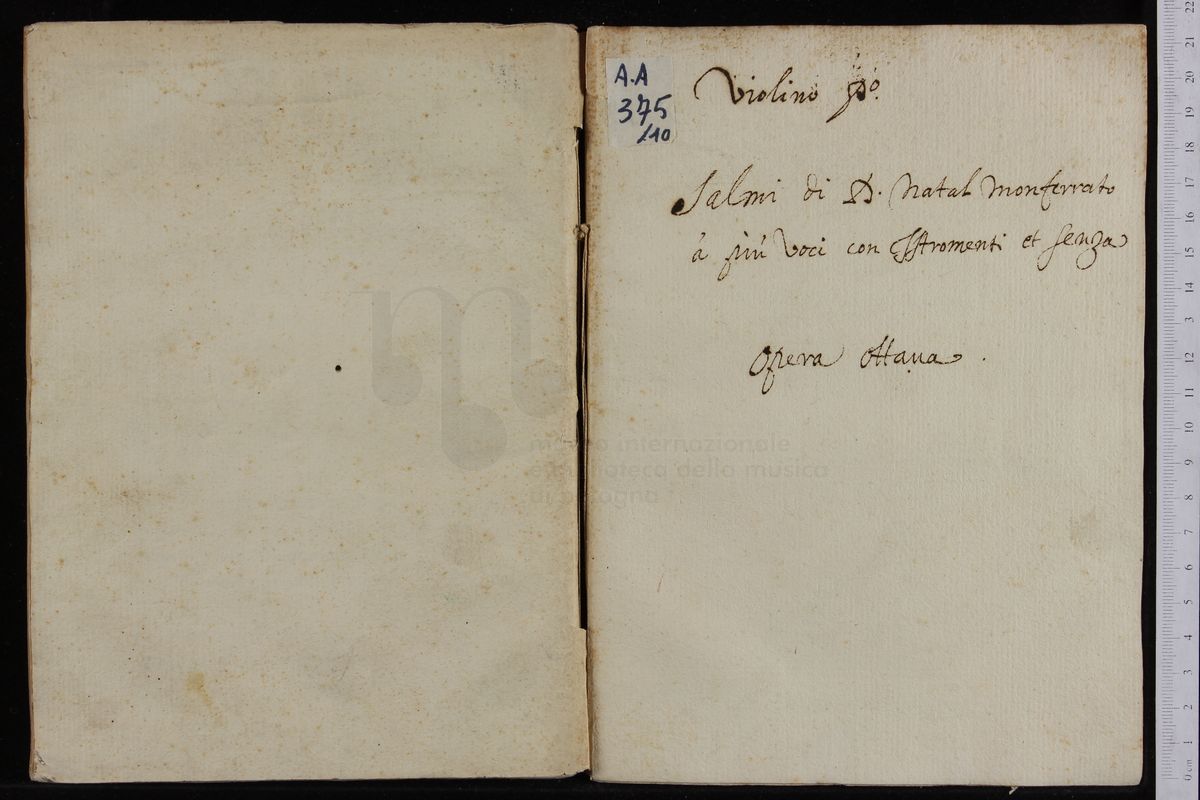 A.A
375
/10
Violino Pº.
Salmi di D. Natal Monferrato
à più Voci con Istromenti et senza
Opera Ottava.
museo internazionale
e biblioteca della musica
di bologna
0 cm 1 2 3 4 5 6 7 8 9 10 11 12 3 14 15 16 17 18 19 20 21 22